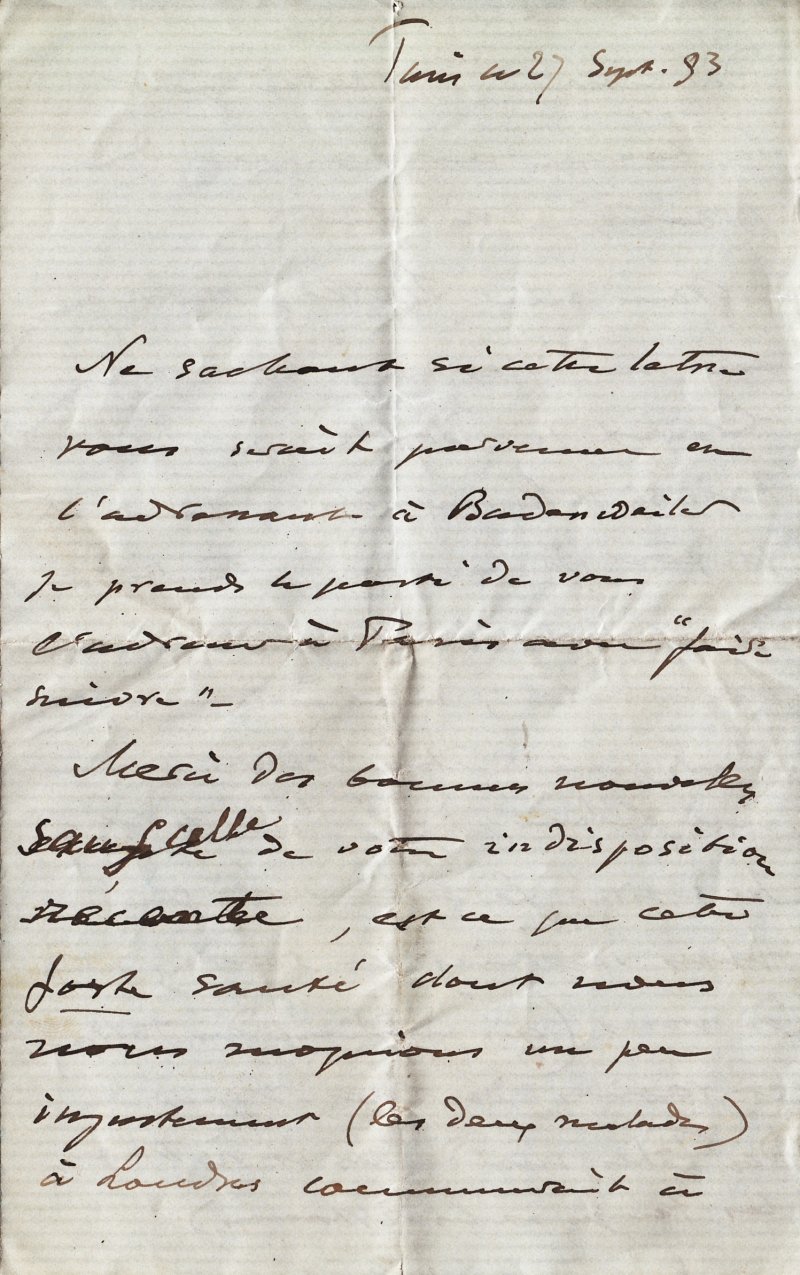 Paris ce 27 Sept. 93
Ne sachant si cette lettre
vous serait parvenue en
l'adressant à Badenweiler
je prends le parti de vous
l'adresser à Paris avec "faire
suivre" -
Merci des bonnes nouvelles
sauf celle de votre indisposition
récente, est ce que cette
forte santé dont nous
nous moquions un peu
injustement (les deux malades)
à Londres commencerait à